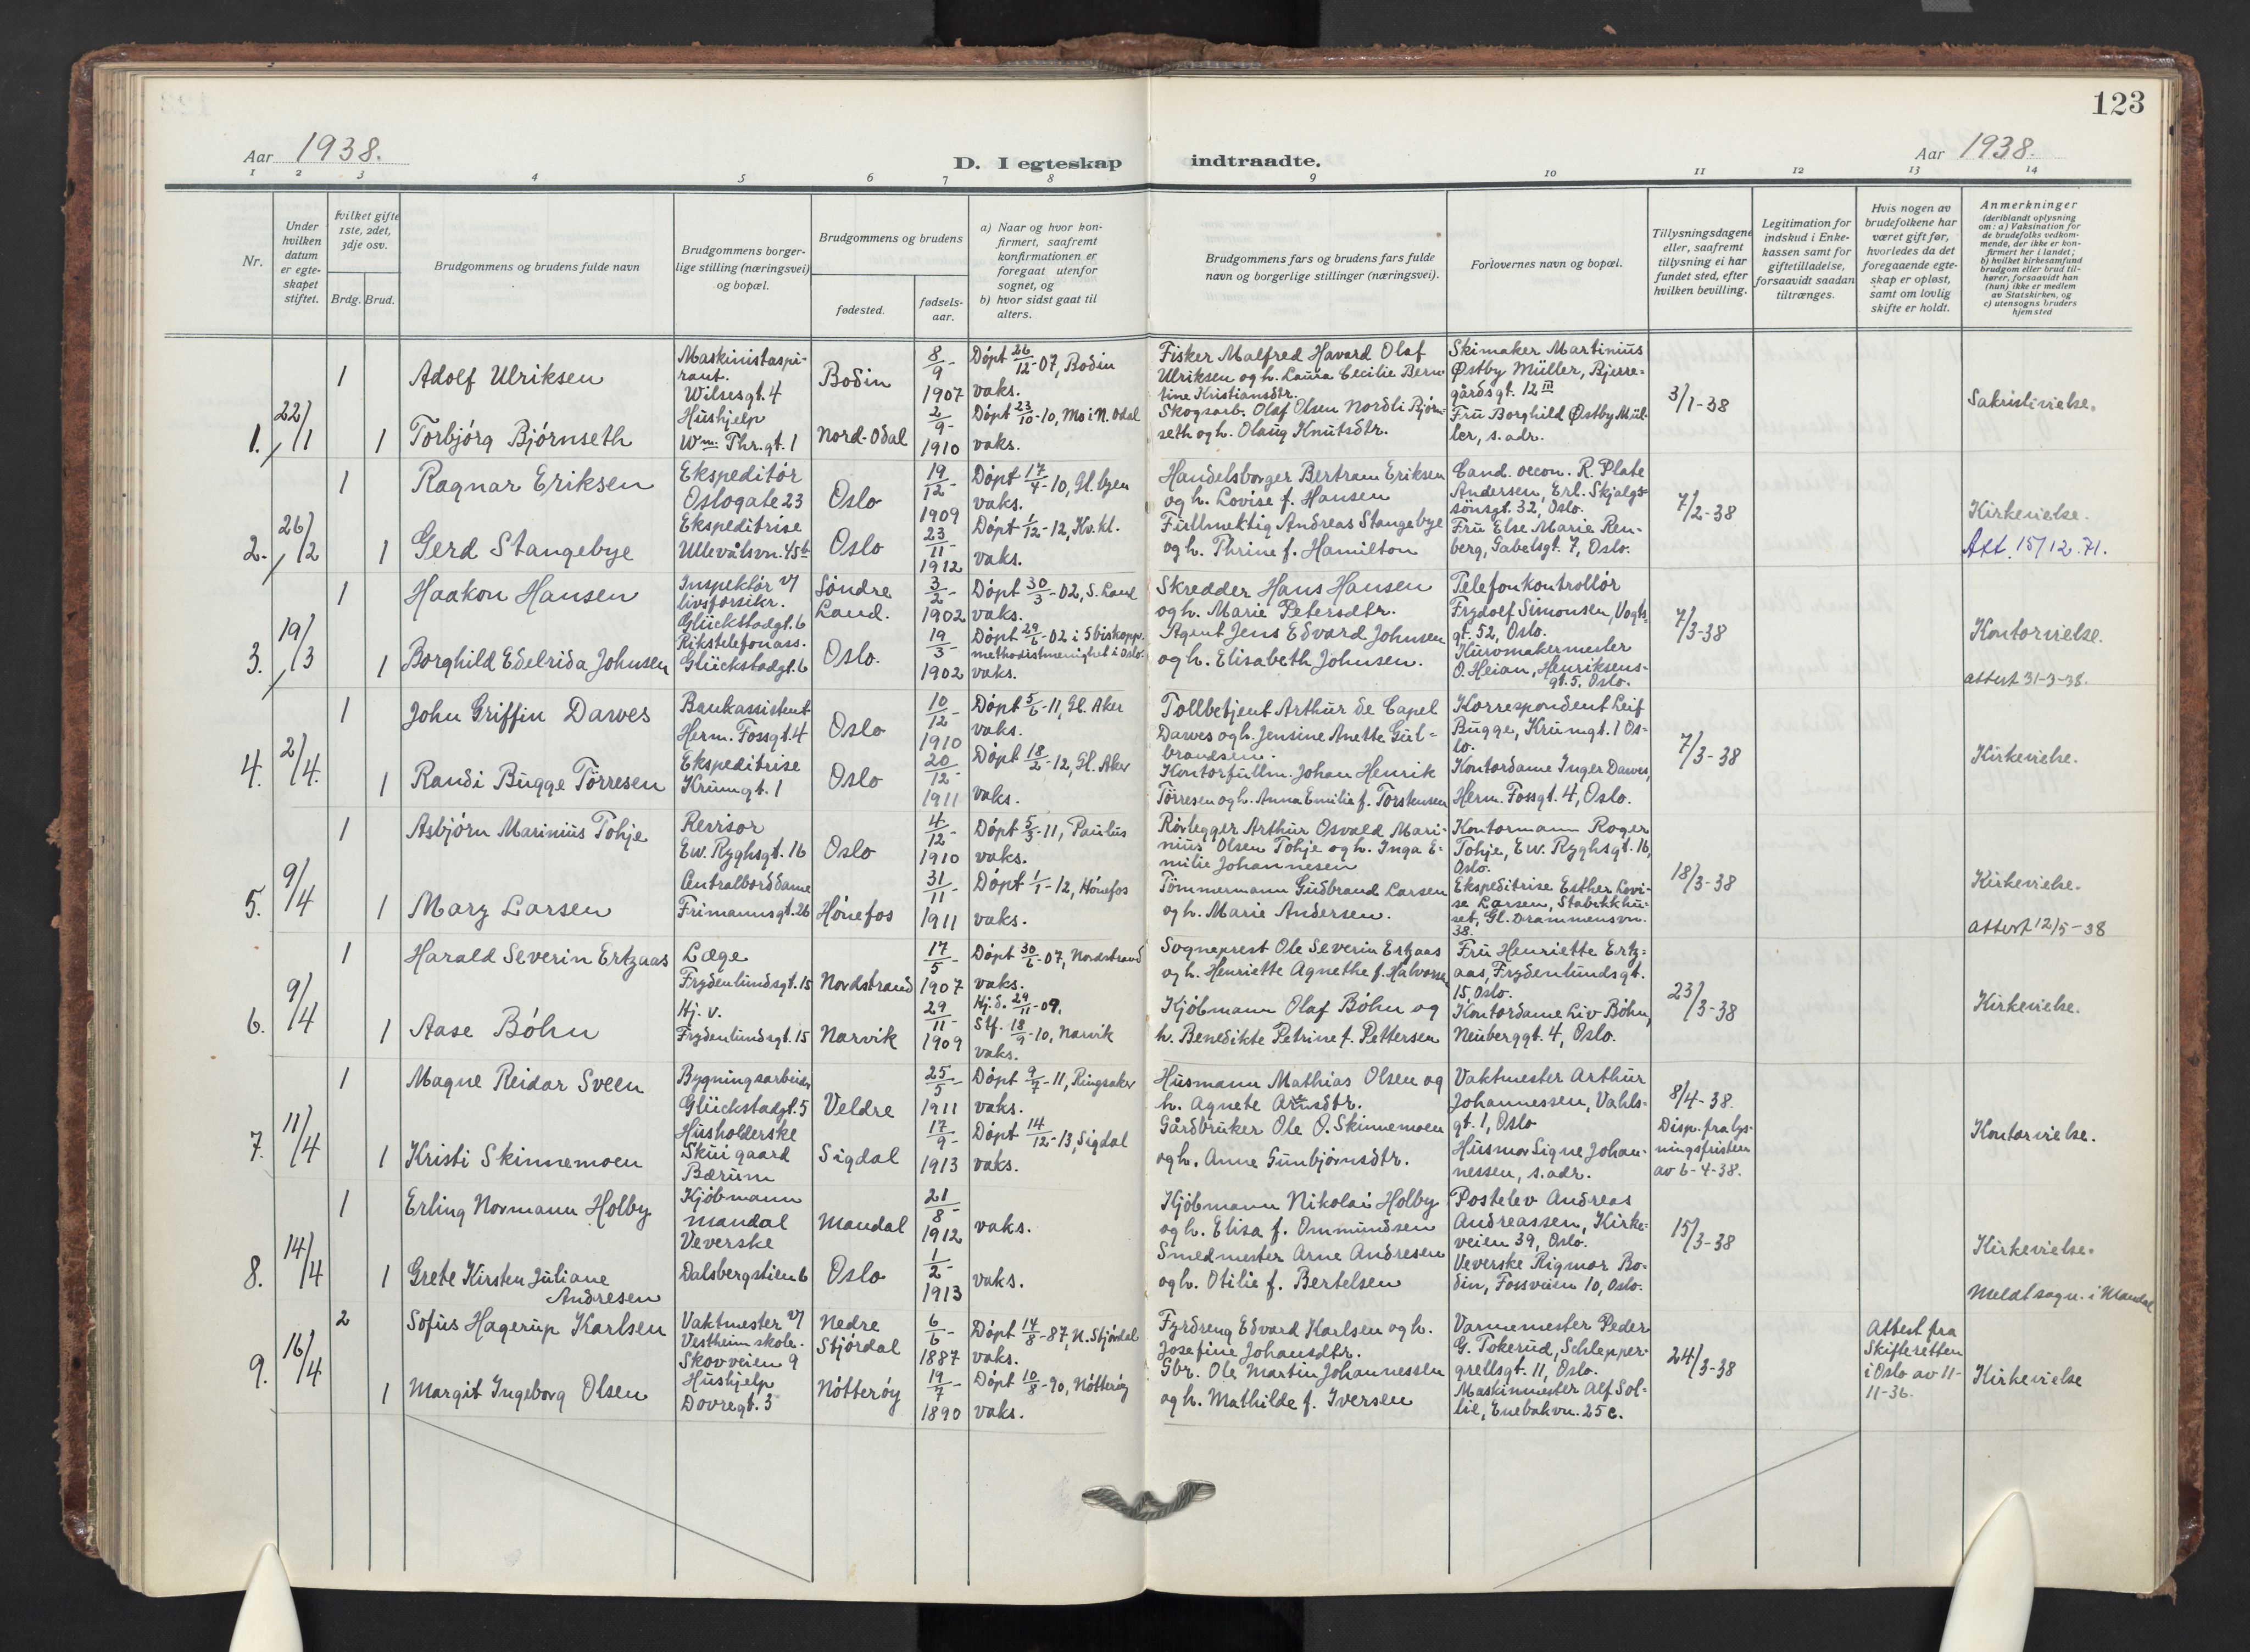 123
Aar 1938.
D. I egteskap indtraadte.
Aar 1938.
1 2 3 4 5 6 7 8 9 10 11 12 13 14
Nr.
Under hvilken datum er egteskapet stiftet.
Hvilket gifte 1ste, 2det, 3dje osv.
Brdg. Brud.
Brudgommens og brudens fulde navn
Brudgommens borgerlige stilling (næringsvei) og bopæl.
Brudgommens og brudens
fødested.
fødselsaar.
a) Naar og hvor konfirmert, saafremt konfirmationen er foregaat utenfor sognet, og
b) hvor sidst gaat til alters.
Brudgommens fars og brudens fars fulde navn og borgerlige stillinger (næringsvei).
Forlovernes navn og bopæl.
Tillysningsdagene eller, saafremt tillysning ei har fundet sted, efter hvilken bevilling.
Legitimation for indskud i Enkekassen samt for giftetilladelse, forsaavidt saadan tiltrænges.
Hvis nogen av brudefolkene har været gift før, hvorledes da det foregaaende egteskap er opløst, samt om lovlig skifte er holdt.
Anmerkninger
(deriblandt oplysning om: a) Vaksination for de brudefolks vedkommende, der ikke er konfirmert her i landet; b) hvilket kirkesamfund brudgom eller brud tilhører, forsaavidt han (hun) ikke er medlem av Statskirken, og c) utensogns bruders hjemsted
1. 22/1
1 Adolf Ulriksen
Maskinistaspirant.
Wilsesgt. 4
Bodin
8/9 - 1907
Döpt 26/12-07, Bodin
vaks.
Fisker Malfred Havard Olaf
Ulriksen og h. Laura Cecilie Berntine Kristiansdtr.
Skimaker Martinius
Østby Müller, Bjerregårdsgt. 12 III
3/1-38
Sakristivielse.
1 Torbjörg Björnseth
Hushjelp
Wm. Thr.gt. 1
Nord-Odal
2/9 - 1910
Döpt 23/10-10, Mo i N. Odal
vaks.
Skogsarb. Olaf Olsen Nordli Björnseth og h. Olaug Knutsdtr.
Fru Borghild Østby Müller, s. adr.
2. 26/2
1 Ragnar Eriksen
Ekspeditör
Oslogate 23
Oslo
19/12 - 1909
Döpt 17/4-10, Gl. byen
vaks.
Handelsborger Bertram Eriksen
og h. Lovise f. Hansen
Cand. oecon. R. Plate
Andersen, Erl. Skjalgssönsgt. 32, Oslo.
7/2-38
Kirkevielse.
Att. 15/12.71.
1 Gerd Stangebye
Ekspeditrise
Ullevålsvn. 45b
Oslo
23/11 - 1912
Döpt 1/12-12, Kv. kl.
vaks.
Fullmektig Andreas Stangebye
og h. Thrine f. Hamilton
Fru Else Marie Renberg, Gabelsgt. 7, Oslo.
3. 19/3
1 Haakon Hansen
Inspektör v/
livsforsikr.
Glückstadgt. 6
Söndre
Land.
3/2 - 1902
Döpt 30/3-02, S. Land
vaks.
Skredder Hans Hansen
og h. Marie Petersdtr.
Telefonkontrollör
Frydolf Simonsen, Vogtsgt. 52, Oslo.
7/3-38
Kontorvielse.
attest 31-3-38.
1 Borghild Edelrida Johnsen
Rikstelefonass.
Glückstadgt. 6
Oslo.
19/3 - 1902
Döpt 29/6-02 i 5 biskopp. methodistmenighet i Oslo.
vaks.
Agent Jens Edvard Johnsen
og h. Elisabeth Johnsen.
Kuromakermester
O. Heian, Henriksensgt. 5, Oslo.
4. 2/4.
1 John Griffin Dawes
Bankassistent
Herm. Fossgt. 4
Oslo
10/12 - 1910
Döpt 5/6-11, Gl. Aker
vaks.
Tollbetjent Arthur de Capel
Dawes og h. Jensine Anette Gulbrandsen.
Korrespondent Leif
Bugge, Krumgt. 1 Oslo.
7/3-38
Kirkevielse.
1 Randi Bugge Törresen
Ekspeditrise
Krumgt. 1
Oslo
20/12 - 1911
Döpt 18/2-12, Gl. Aker
vaks.
Kontorfullm. Johan Henrik
Törresen og h. Anna Emilie f. Torstensen
Kontordame Inger Dawes,
Herm. Fossgt. 4, Oslo.
5. 9/4
1 Asbjörn Marinius Tohje
Revisor
Ew. Ryghsgt. 16
Oslo
4/12 - 1910
Döpt 5/3-11, Paulus
vaks.
Rörlegger Arthur Osvald Marinius Olsen Tohje og h. Inga Emilie Johannesen
Kontormann Roger
Tohje, Ew. Ryghsgt. 16,
Oslo.
18/3-38
Kirkevielse.
attest 12/5-38
1 Mary Larsen
Centralborddame
Frimannsgt. 26
Hönefos
31/11 - 1911
Döpt 1/1-12, Hönefos
vaks.
Tömmermann Gudbrand Larsen
og h. Marie Andersen.
Ekspeditrise Esther Lovise Larsen, Stabekkhuset, Gl. Drammensvn.
38.
6. 9/4
1 Harald Severin Ertzaas
Læge
Frydenlundsgt. 15
Nordstrand
17/5 - 1907
Döpt 30/6-07, Nordstrand
vaks.
Sogneprest Ole Severin Ertzaas
og h. Henriette Agnethe f. Halvorsen
Fru Henriette Ertzaas, Frydenlundsgt.
15, Oslo.
23/3-38
Kirkevielse.
1 Aase Böhn
Hj. v.
Frydenlundsgt. 15
Narvik
29/11 - 1909
Hj. d. 29/11-09.
Stf. 18/9-10, Narvik
vaks.
Kjöbmann Olaf Böhn og
h. Benedikte Petrine f. Pettersen
Kontordame Liv Böhn,
Neuberggt. 4, Oslo.
7. 11/4
1 Magne Reidar Sveen
Bygningsarbeider
Glückstadgt. 5
Veldre
25/5 - 1911
Döpt 9/7-11, Ringsaker
vaks.
Husmann Mathias Olsen og
h. Agnete Arnesdtr.
Vaktmester Arthur
Johannessen, Vahlsgt. 1, Oslo
8/4-38.
Disp. fra lysningsfristen
av 6-4-38.
Kontorvielse.
1 Kristi Skinnemoen
Husholderske
Skui gaard
Bærum
Sigdal
17/9 - 1913
Döpt 14/12-13, Sigdal
vaks.
Gårdbruker Ole O. Skinnemoen
og h. Anne Gunbjörnsdtr.
Husmor Signe Johannessen, s. adr.
8. 14/4
1 Erling Normann Holby
Kjöbmann
Mandal
Mandal
21/8 - 1912
vaks.
Kjöbmann Nikolai Holby
og h. Elisa f. Ommundsen
Postelev Andreas
Andreassen, Kirkeveien 39, Oslo.
15/3-38
Kirkevielse.
Meldt sogn. i Mandal
1 Grete Kirsten Juliane
Andresen
Veverske
Dalsbergstien 6
Oslo
1/2 - 1913
vaks.
Smedmester Arne Andresen
og h. Otilie f. Bertelsen
Veverske Rigmor Bodin, Fossveien 10, Oslo.
9. 16/4
2 Sofus Hagerup Karlsen
Vaktmester v/
Vestheim skole.
Skovveien 9
Nedre
Stjördal
6/6 - 1887
Döpt 14/8-87, N. Stjördal
vaks.
Fyrdreng Edvard Karlsen og h.
Josefine Johansdtr.
Varmemester Peder
G. Tokerud, Schleppergrellsgt. 11, Oslo.
24/3-38
Attest fra
Skifteretten
i Oslo av 11-
11-36.
Kirkevielse
1 Margit Ingeborg Olsen
Hushjelp
Dovregt. 3
Nötteröy
19/7 - 1890
Döpt 10/8-90, Nötteröy
vaks.
Gbr. Ole Martin Johannessen
og h. Mathilde f. Iversen
Maskinmester Alf Sollie, Enebakvn. 25 c.